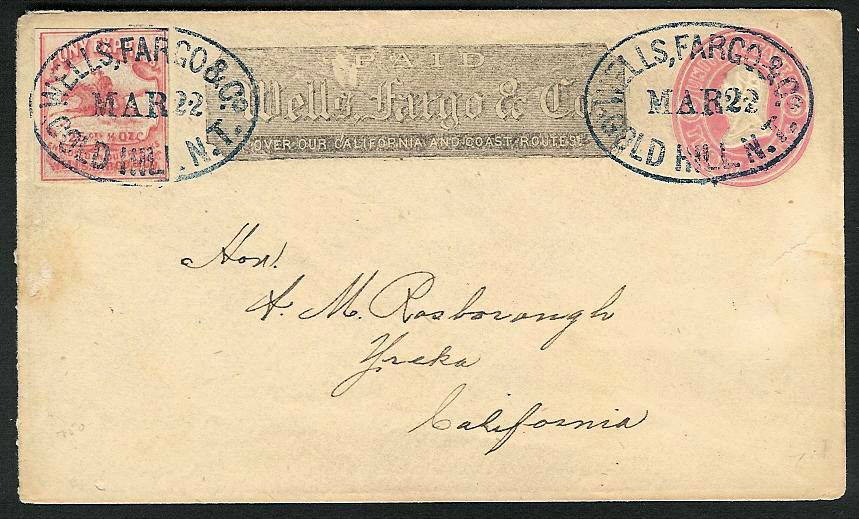 WELLS, FARGO & Co.
MAR 22
GOLD HILL N.T.
PAID
Wells Fargo & Co
OVER OUR CALIFORNIA AND COAST ROUTES
WELLS, FARGO & Co.
MAR 22
GOLD HILL N.T.
Hon!
A. M. Rosborough
Yreka
California